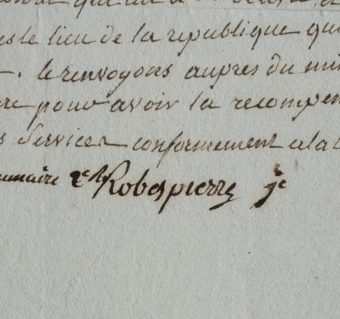 est le lieu de la republique qu
. le renvoyons aupres du mi
pour avoir la recompen
Services conformement a la
Robespierre je